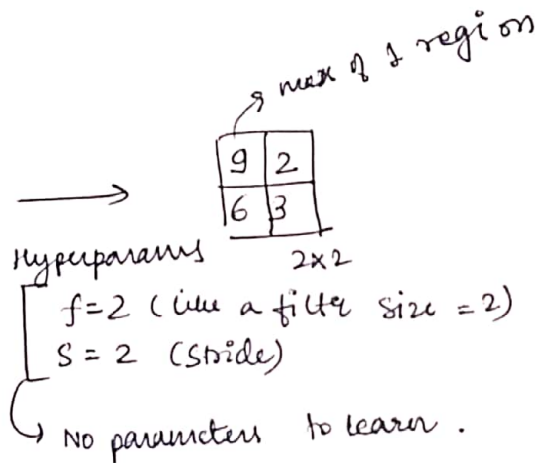 max of 1 region
9 2
6 3
2x2
Hyperparams
f=2 (like a filter size = 2)
S = 2 (Stride)
No parameters to learn.